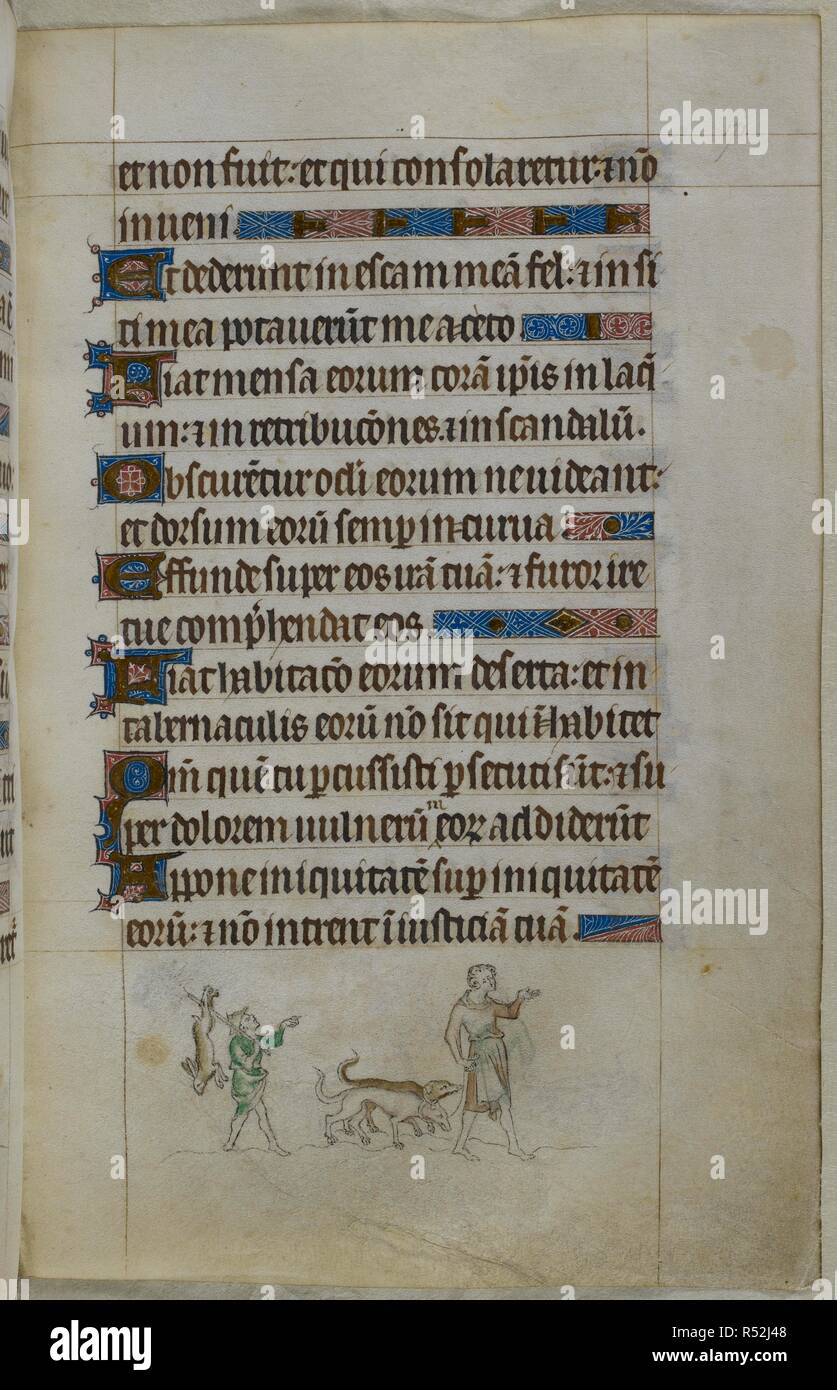 et non fuit: et qui consolaretur: ⁊ nō
inueni.
Et dederunt in escam meā fel: ⁊ in si
ti mea potauerūt me aceto
Fiat mensa eorum corā ip̄is in laq̄
um: ⁊ in retribuc̄ones. ⁊ in scandalū.
Obscurētur oc̄li eorum ne uideant:
et dorsum eorū semp̱ incurua
Effunde super eos irā tuā: ⁊ furor ire
tue comp̄hendat eos.
Fiat habitac̄o eorum deserta: et in
tabernaculis eorū nō sit qui īhabitet
Qm̄ quē tu p̱cussisti p̱secuti sūt: ⁊ su
per dolorem uulnerū meoꝝ addiderūt
Appone iniquitatē sup̱ iniquitatē
eorū: ⁊ nō intrent ī iusticiā tuā.
alamy
a
a
a
a
a
a
alamy
Image ID: R52J48
www.alamy.com